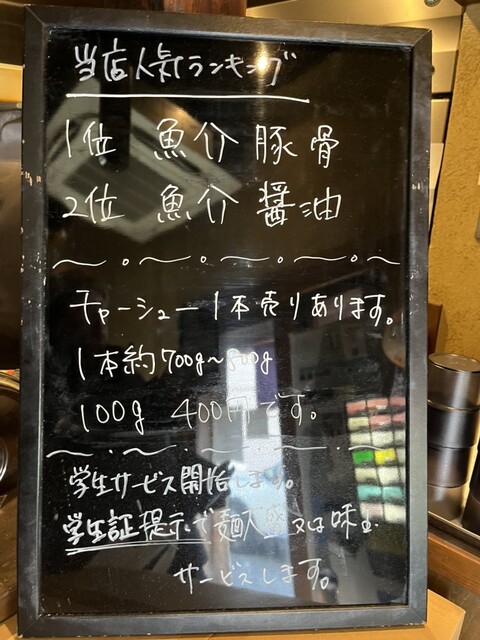 当店人気ランキング
1位 魚介豚骨
2位 魚介醤油
チャーシュー1本売りあります。
1本約700g~800g
100g 400円です。
学生サービス開始します。
学生証提示で麺大盛又は味玉
サービスします。